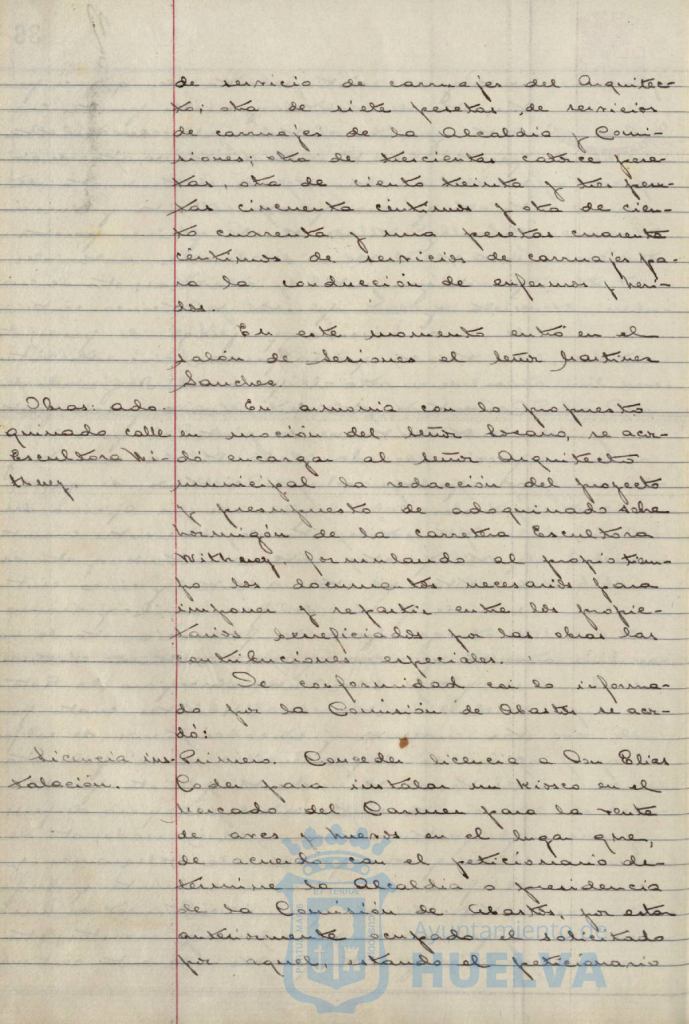 de servicio de carruajes del Arquitec-
to; otra de siete pesetas, de servicios
de carruajes de la Alcaldia y Comi-
siones; otra de trescientas catorce pese-
tas, otra de ciento treinta y tres pese-
tas cincuenta céntimos y otra de cien-
to cuarenta y una pesetas cuarenta
céntimos de servicios de carruajes pa-
ra la conducción de enfermos y heri-
dos.
En este momento entró en el
salón de Sesiones el Señor Martinez
Sanchez.
Obras: ado-
quinado calle
Escultora Wi-
thney.
En armonia con lo propuesto
en moción del Señor Lozano, se acor-
dó encargar al Señor Arquitecto
municipal la redacción del proyecto
y presupuesto de adoquinado sobre
hormigón de la carretera Escultora
Withney, formulando al propio tiem-
po los documentos necesarios para
imponer y repartir entre los propie-
tarios beneficiados por las obras las
contribuciones especiales.
De conformidad con lo informa-
do por la Comisión de Abastos se acor-
dó:
Licencia ins-
talación.
Primero. Conceder licencia a Don Elias
Coder para instalar un kiosco en el
Mercado del Carmen para la venta
de aves y huevos en el lugar que,
de acuerdo con el peticionario de-
termine la Alcaldia o presidencia
de la Comisión de Abastos, por estar
anteriormente ocupado el solicitado
por aquel, estando el peticionario
Ayuntamiento de
HUELVA